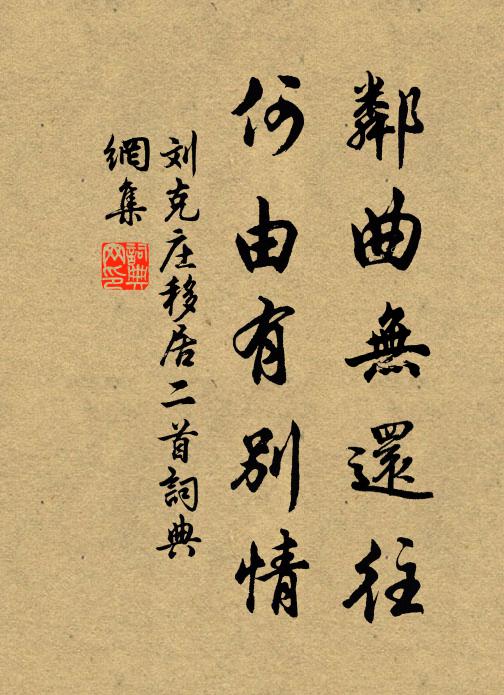 鄰曲無還往
何由有别情
刘克庄移居二首詞典
網集
詞典
网印